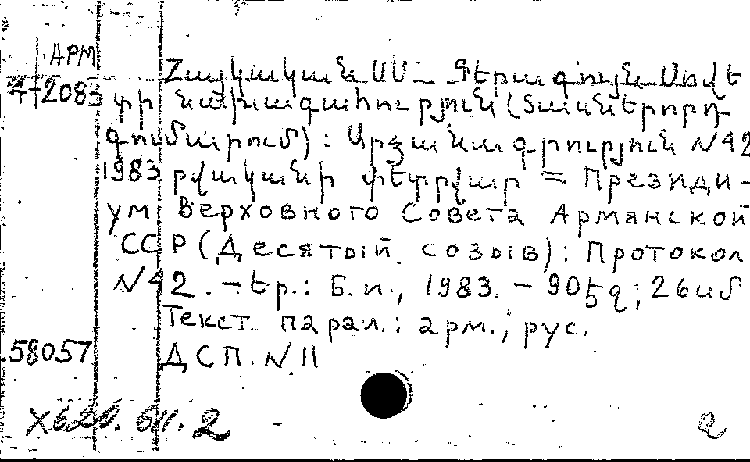 АРМ
Հայկական ՍՍ Գերագույն Սովե
4-2083 տի նախագահություն (Տասներորդ
գումարում): Արձանագրություն N 42
1983 թվականի փետրվար = Президи-
ум Верховного Совета Армянской
ССР (Десятый созыв): Протокол
N 42. - Եր.: Б.и., 1983. - 905 զ; 26 սմ
Текст парал.: арм., рус.
58057 ДСП N 11
X620.611.2